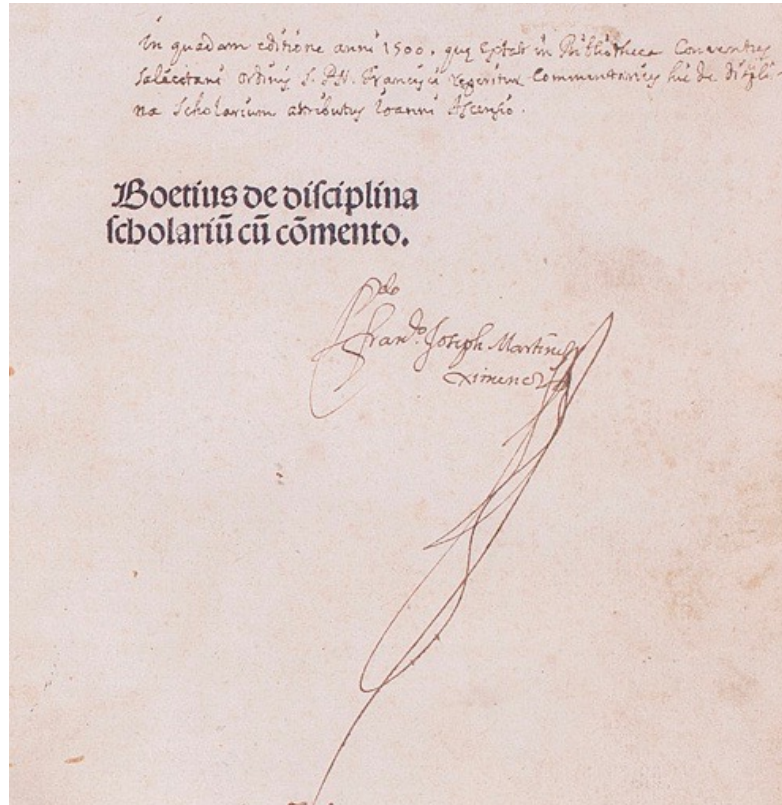 in quadam editione anni 1500. quę extat in Bibliotheca Conventus
ordinis S. P. N. Francisci reperitur Commentarius hic de discipli-
na Scholarium attributus Ioanni Ascensio.
Boetius de disciplina
scholariū cū cōmento.
Joseph Martinez
Ximenez